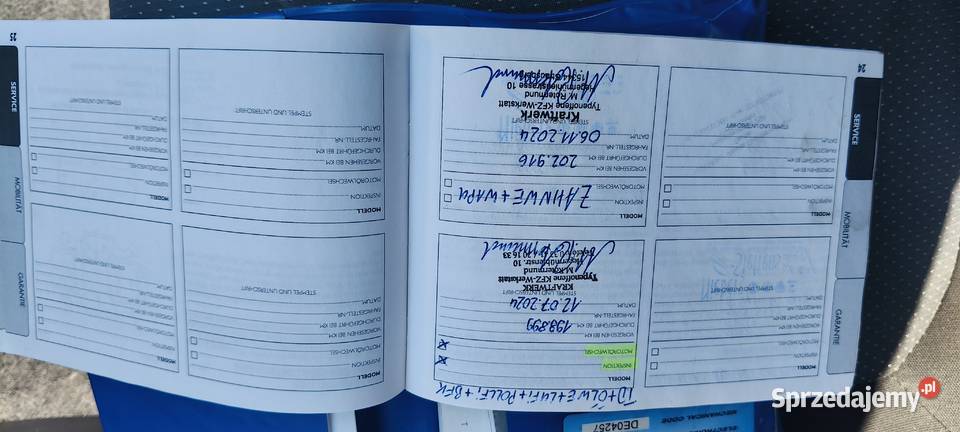 24
SERVICE
MOBILITÄT
GARANTIE
MODELL
INSPEKTION
MOTORÖLWECHSEL
VORGESEHEN BEI KM
DURCHGEFÜHRT BEI KM
FAHRGESTELL-NR.
DATUM
STEMPEL UND UNTERSCHRIFT
+ÖLWE+LUFI+POLLFI+BFK
MODELL
INSPEKTION
MOTORÖLWECHSEL
VORGESEHEN BEI KM
DURCHGEFÜHRT BEI KM 198.899
FAHRGESTELL-NR.
DATUM 12.07.2024
STEMPEL UND UNTERSCHRIFT
KRAFTWERK
Typenoffene KFZ-Werkstatt
M.Rotermund
Hegermühlenstr. 10
MODELL
INSPEKTION
MOTORÖLWECHSEL
VORGESEHEN BEI KM
DURCHGEFÜHRT BEI KM
FAHRGESTELL-NR.
DATUM
STEMPEL UND UNTERSCHRIFT
MODELL
INSPEKTION ZAHNWE+WAPU
MOTORÖLWECHSEL
VORGESEHEN BEI KM
DURCHGEFÜHRT BEI KM 202.916
FAHRGESTELL-NR.
DATUM 06.11.2024
STEMPEL UND UNTERSCHRIFT
Kraftwerk
Typenoffene KFZ-Werkstatt
M. Rotermund
Hegermühlenstrasse 10
15344 Strausberg
25
SERVICE
MOBILITÄT
GARANTIE
MODELL
INSPEKTION
MOTORÖLWECHSEL
VORGESEHEN BEI KM
DURCHGEFÜHRT BEI KM
FAHRGESTELL-NR.
DATUM
STEMPEL UND UNTERSCHRIFT
MODELL
INSPEKTION
MOTORÖLWECHSEL
VORGESEHEN BEI KM
DURCHGEFÜHRT BEI KM
FAHRGESTELL-NR.
DATUM
STEMPEL UND UNTERSCHRIFT
MODELL
INSPEKTION
MOTORÖLWECHSEL
VORGESEHEN BEI KM
DURCHGEFÜHRT BEI KM
FAHRGESTELL-NR.
DATUM
STEMPEL UND UNTERSCHRIFT
MODELL
INSPEKTION
MOTORÖLWECHSEL
VORGESEHEN BEI KM
DURCHGEFÜHRT BEI KM
FAHRGESTELL-NR.
DATUM
STEMPEL UND UNTERSCHRIFT
MECHANICAL CODE
DE04257
Sprzedajemy.pl